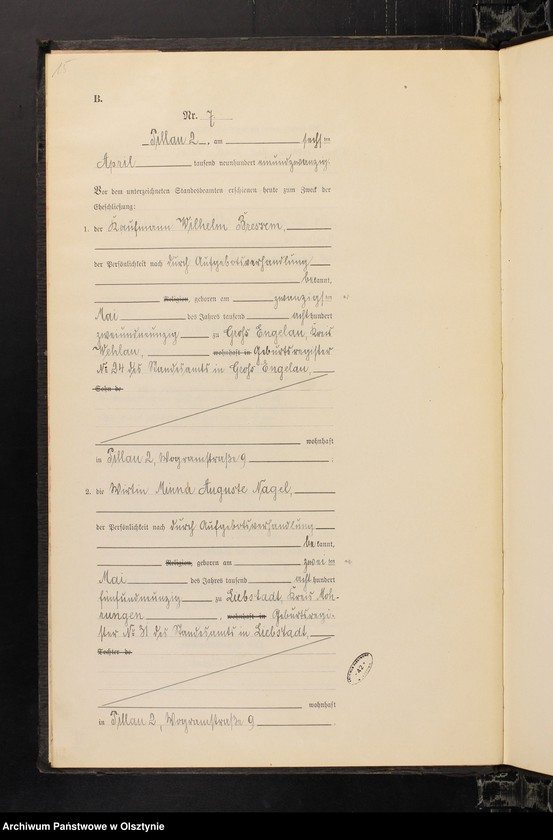 15
B.
Nr. 7
Pillau 2, am sechsten
April tausend neunhundert einundzwanzig
Vor dem unterzeichneten Standesbeamten erschienen heute zum Zweck der
Eheschließung:
1. der Kaufmann Wilhelm Bressem,
der Persönlichkeit nach durch Aufgebotsverhandlung
bekannt,
Religion, geboren am zwanzigsten
Mai des Jahres tausend achthundert
zweiundneunzig zu Groß Engelau, Kreis
Wehlau, wohnhaft in Geburtsregister
№ 24 des Standesamts in Groß Engelau,
Sohn de
wohnhaft
in Pillau 2, Wogramstraße 9.
2. die Wirtin Minna Auguste Nagel,
der Persönlichkeit nach durch Aufgebotsverhandlung
bekannt,
Religion, geboren am zweiten
Mai des Jahres tausend achthundert
fünfundneunzig zu Liebstadt, Kreis Moh-
rungen, wohnhaft in Geburtsregi-
ster № 31 des Standesamts in Liebstadt,
Tochter de
42
wohnhaft
in Pillau 2, Wogramstraße 9.
Archiwum Państwowe w Olsztynie